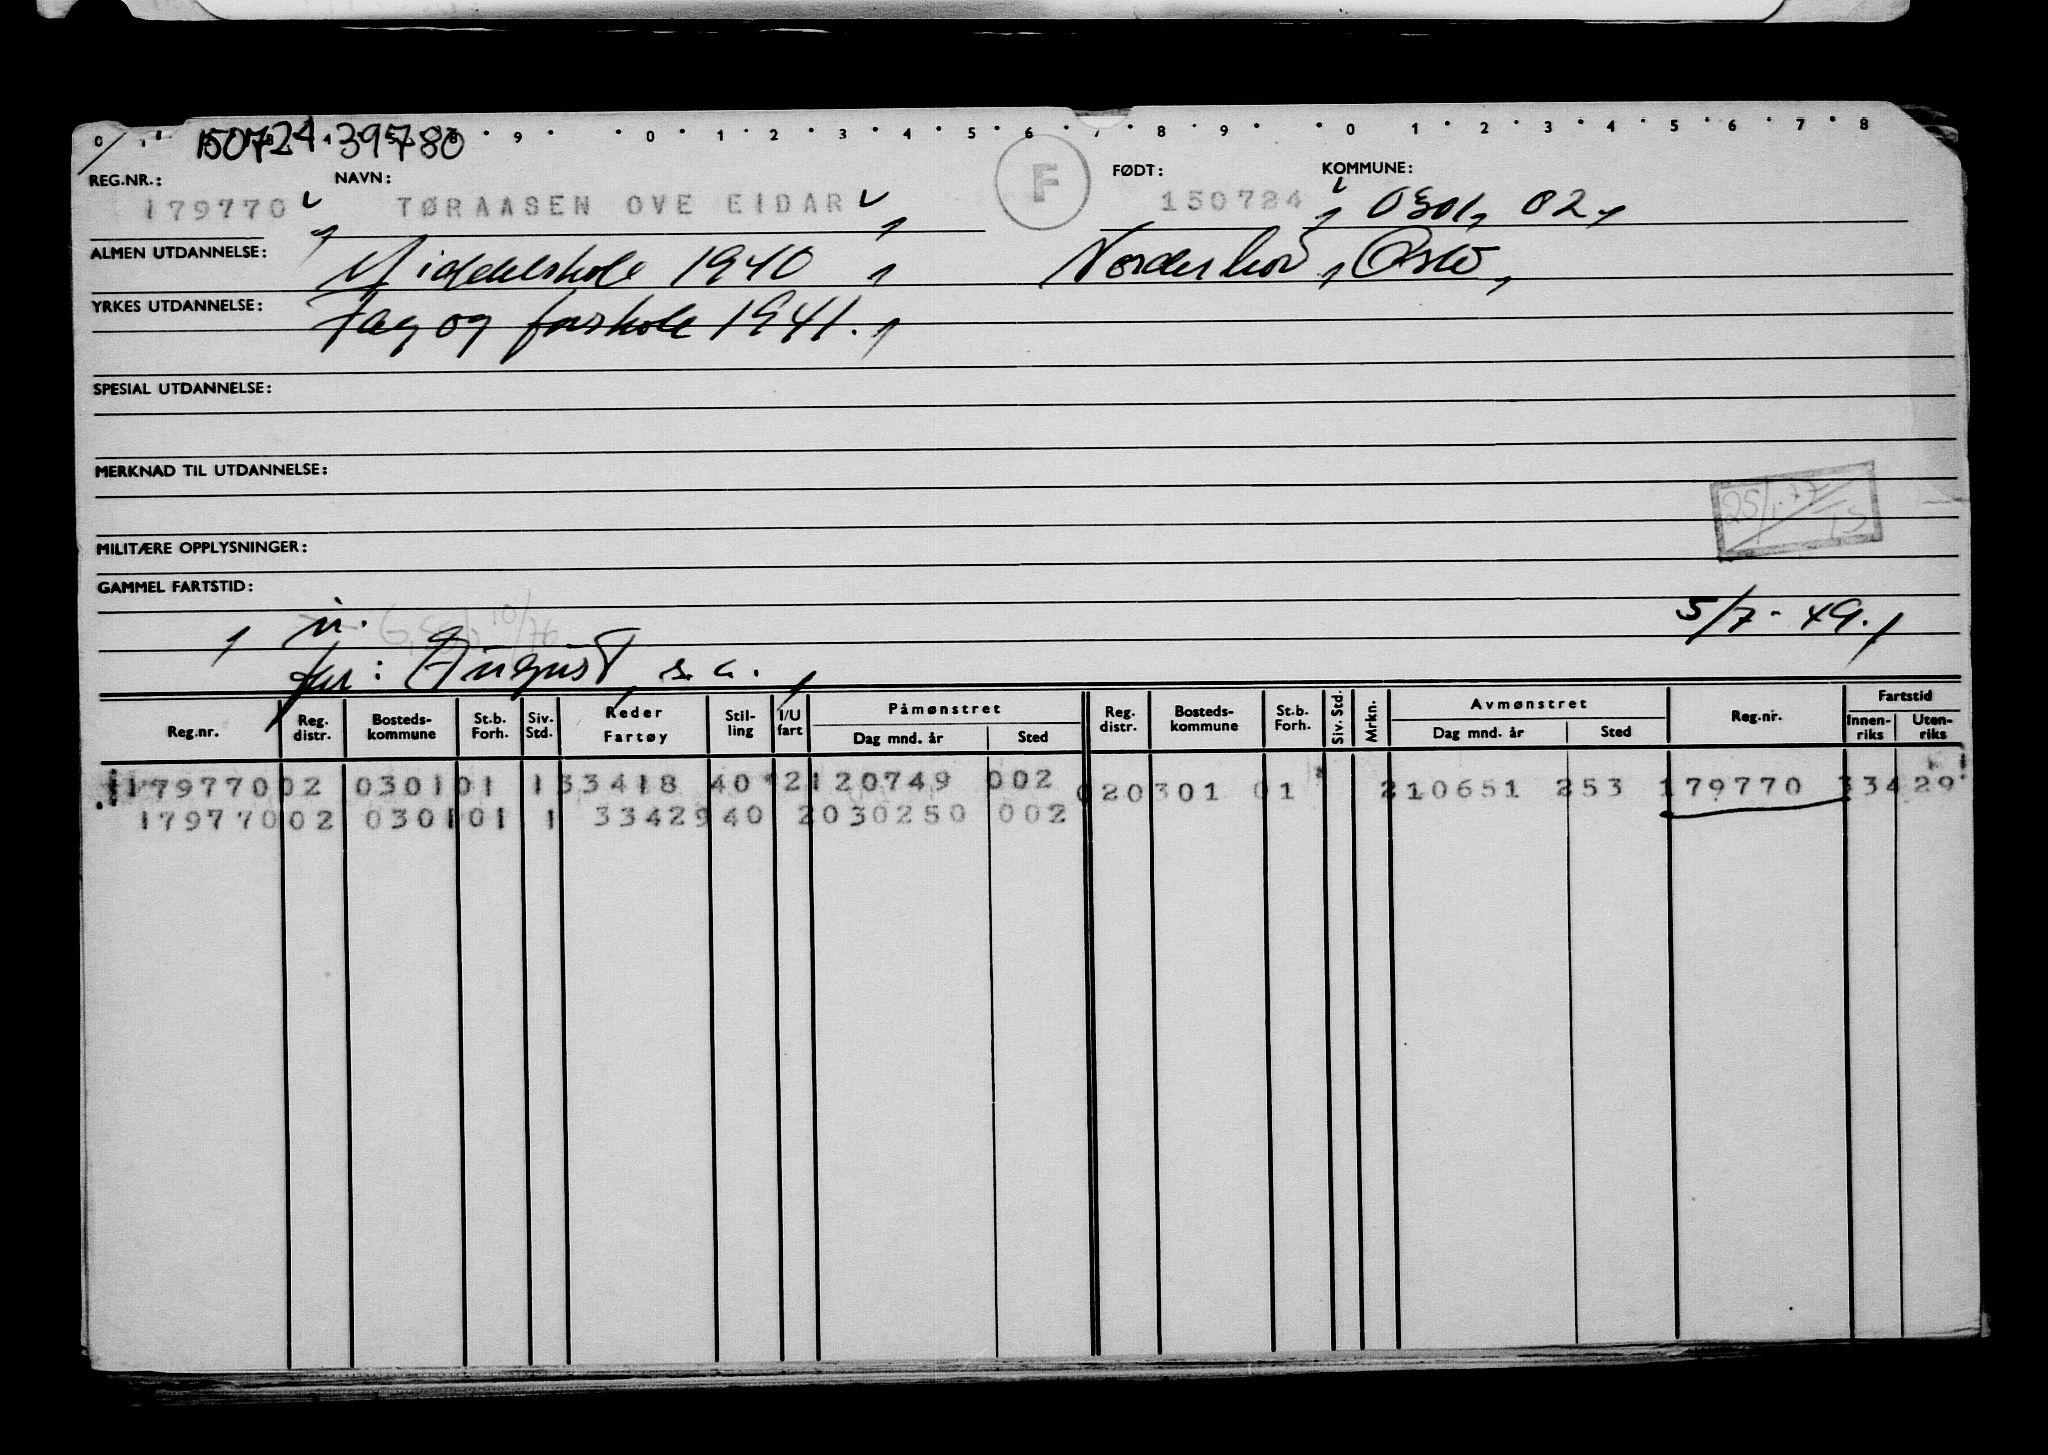 150724 39780
REG.NR.: NAVN: F FØDT: KOMMUNE:
179770 TØRAASEN OVE EIDAR 150724 0301, 02,
ALMEN UTDANNELSE: Middelskole 1940, Norderhov, Oslo,
YRKES UTDANNELSE: Fag og forskole 1941.,
SPESIAL UTDANNELSE:
MERKNAD TIL UTDANNELSE:
MILITÆRE OPPLYSNINGER:
GAMMEL FARTSTID:
5/7-49.,
far: August, s.a.,
Reg.nr. Reg. distr. Bosteds-kommune St.b. Forh. Siv. Std. Reder Fartøy Stil-ling I/U fart Påmønstret Dag mnd. år Sted Reg. distr. Bosteds-kommune St.b. Forh. Siv. Std. Mrkn. Avmønstret Dag mnd. år Sted Reg.nr. Fartstid Innen-riks Uten-riks
179770 02 0301 01 1 33418 40 2 120749 002 02 0301 01 210651 253 179770 33429
179770 02 0301 01 1 33429 40 2 030250 002